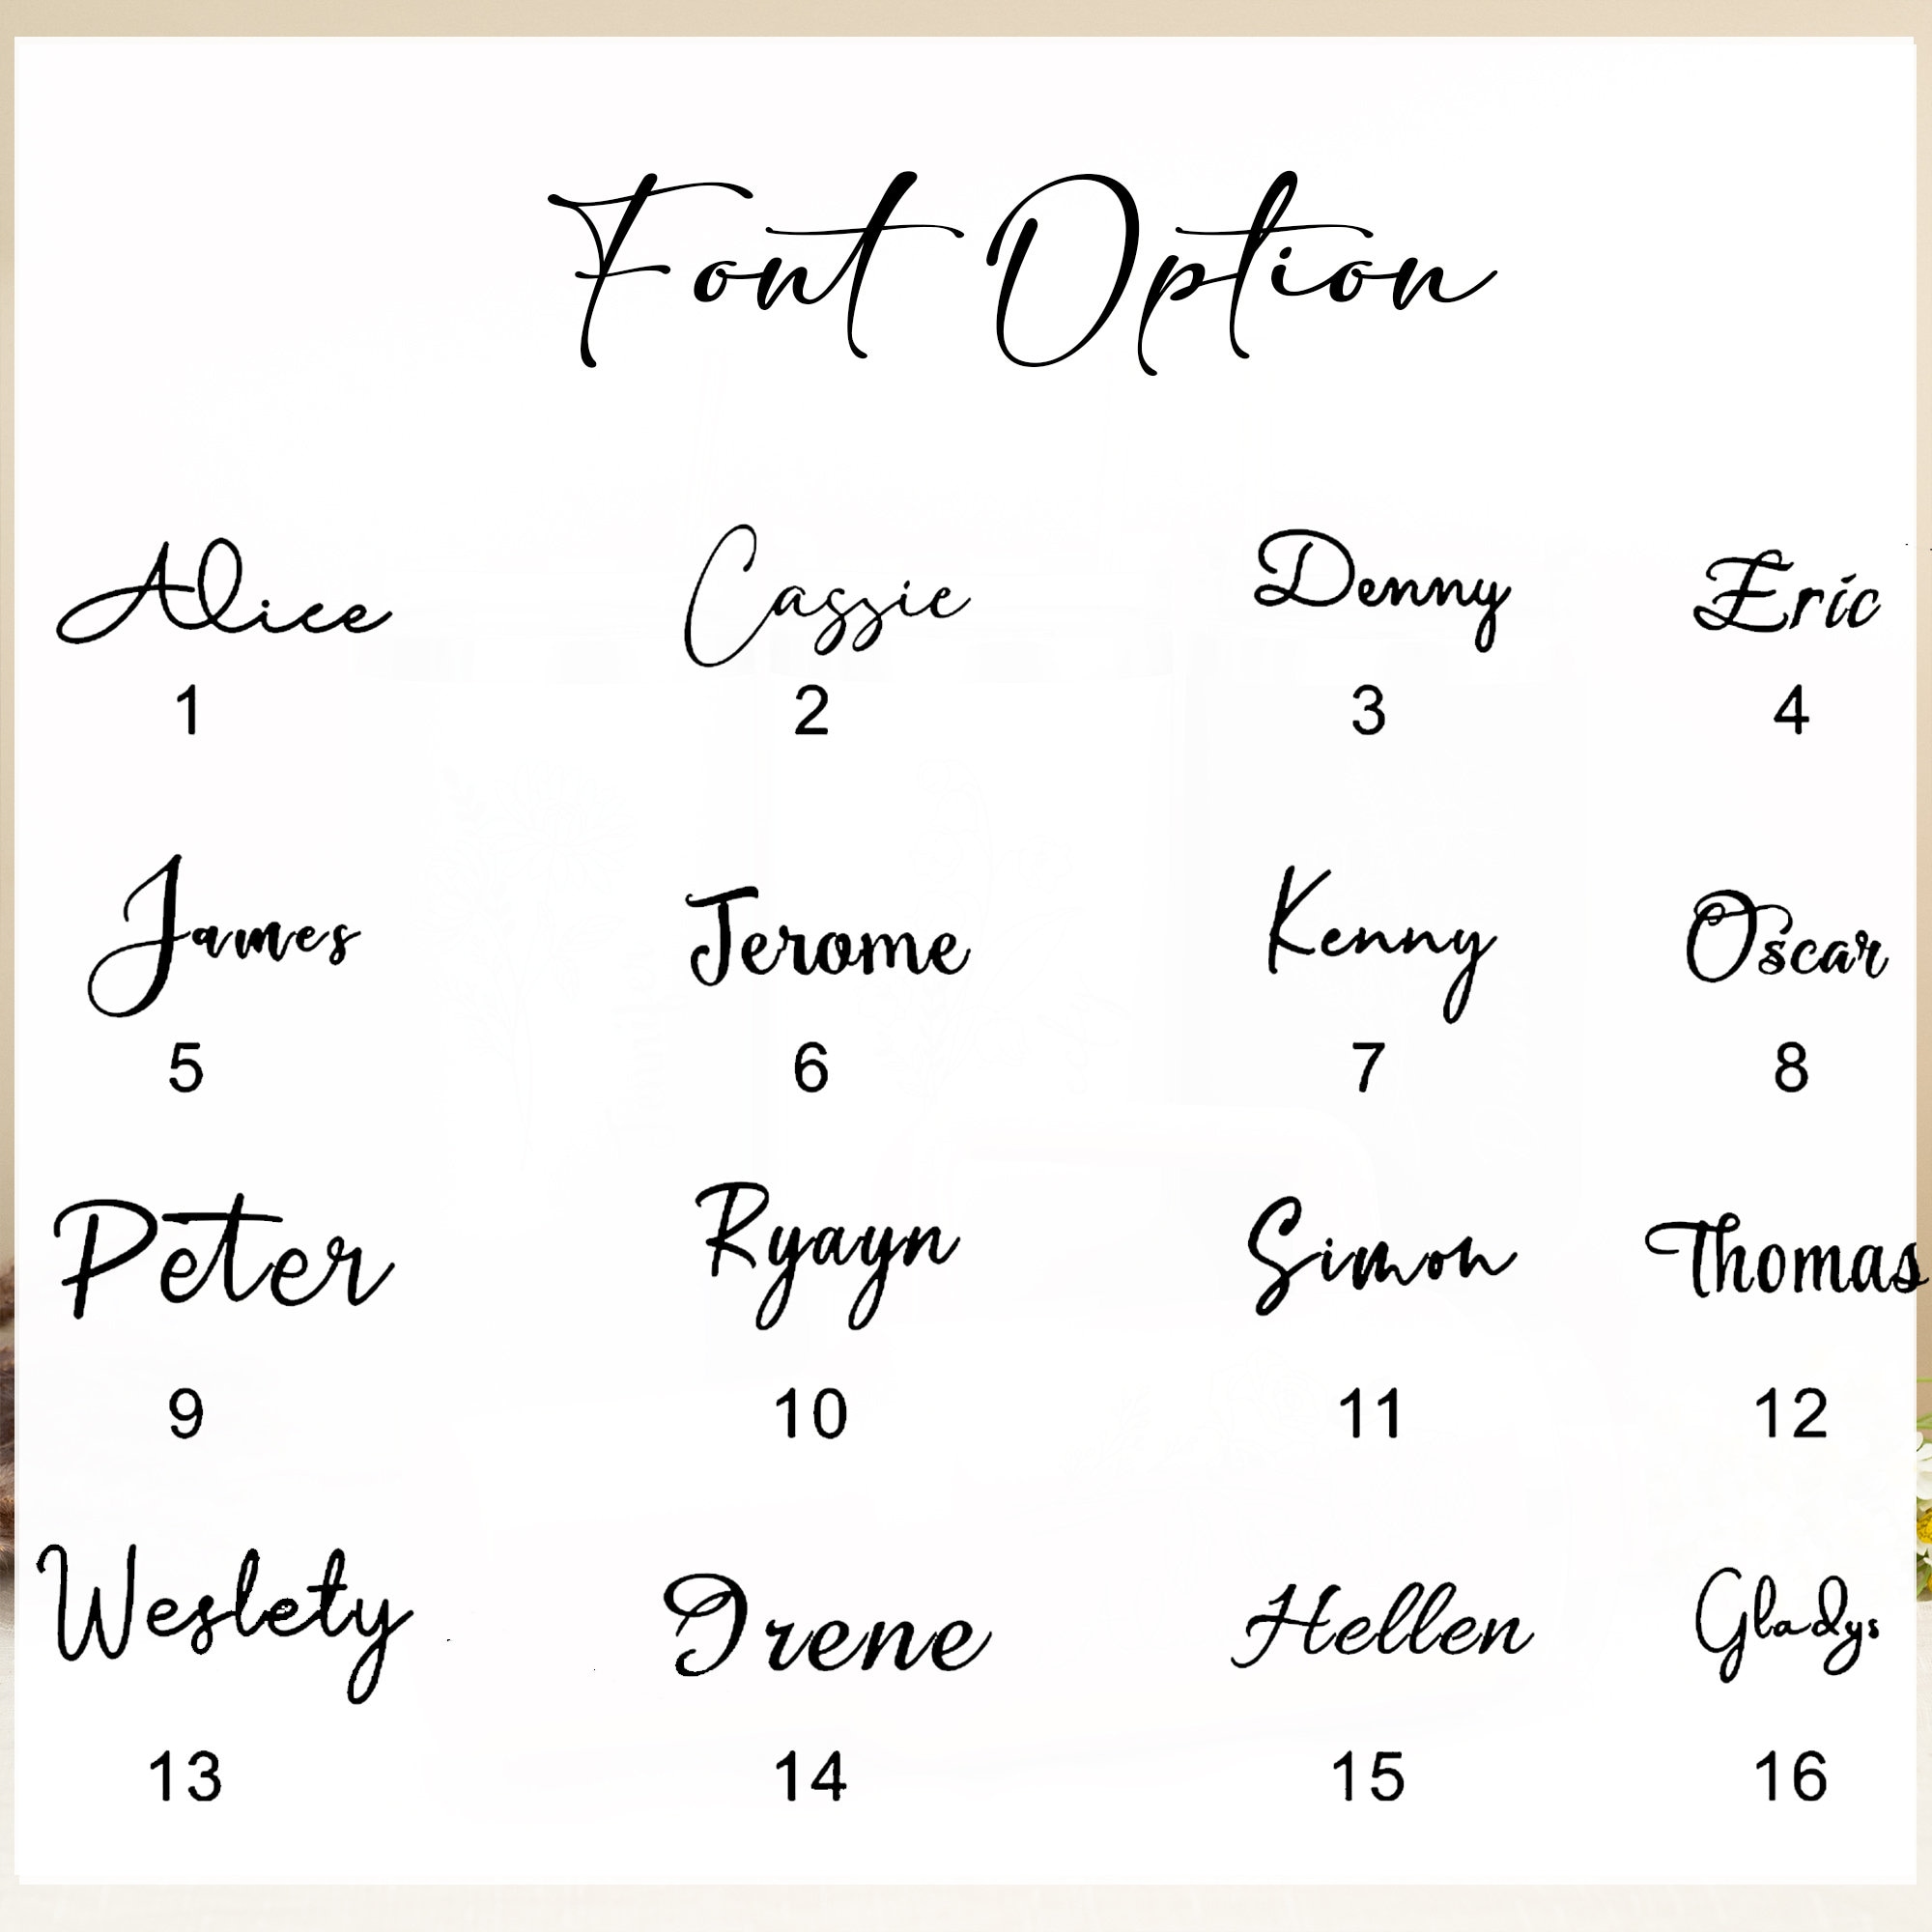 Font Option
Alice Cassie Denny Eric
1 2 3 4
James Jerome Kenny Oscar
5 6 7 8
Peter Ryayn Simon Thomas
9 10 11 12
Weslety Irene Hellen Gladys
13 14 15 16